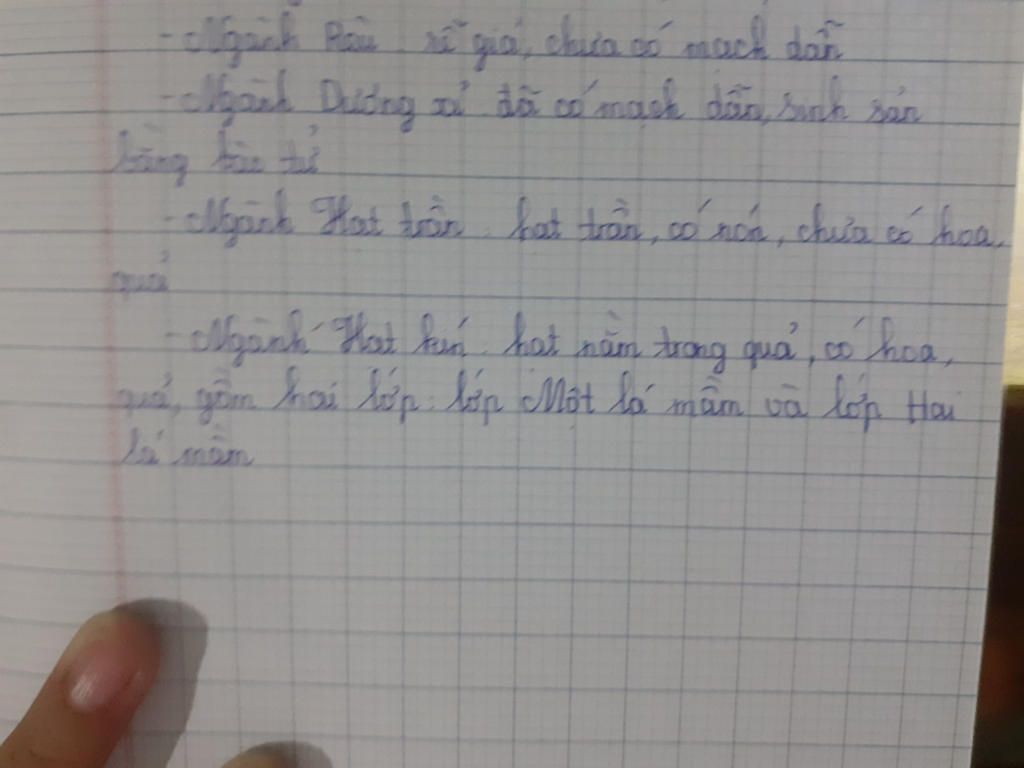 - Ngành Rêu: rễ giả, chưa có mạch dẫn
- Ngành Dương xỉ: đã có mạch dẫn, sinh sản
bằng bào tử
- Ngành Hạt trần: hạt trần, có nón, chưa có hoa,
quả
- Ngành Hạt kín: hạt nằm trong quả, có hoa,
quả, gồm hai lớp: lớp Một lá mầm và lớp Hai
lá mầm